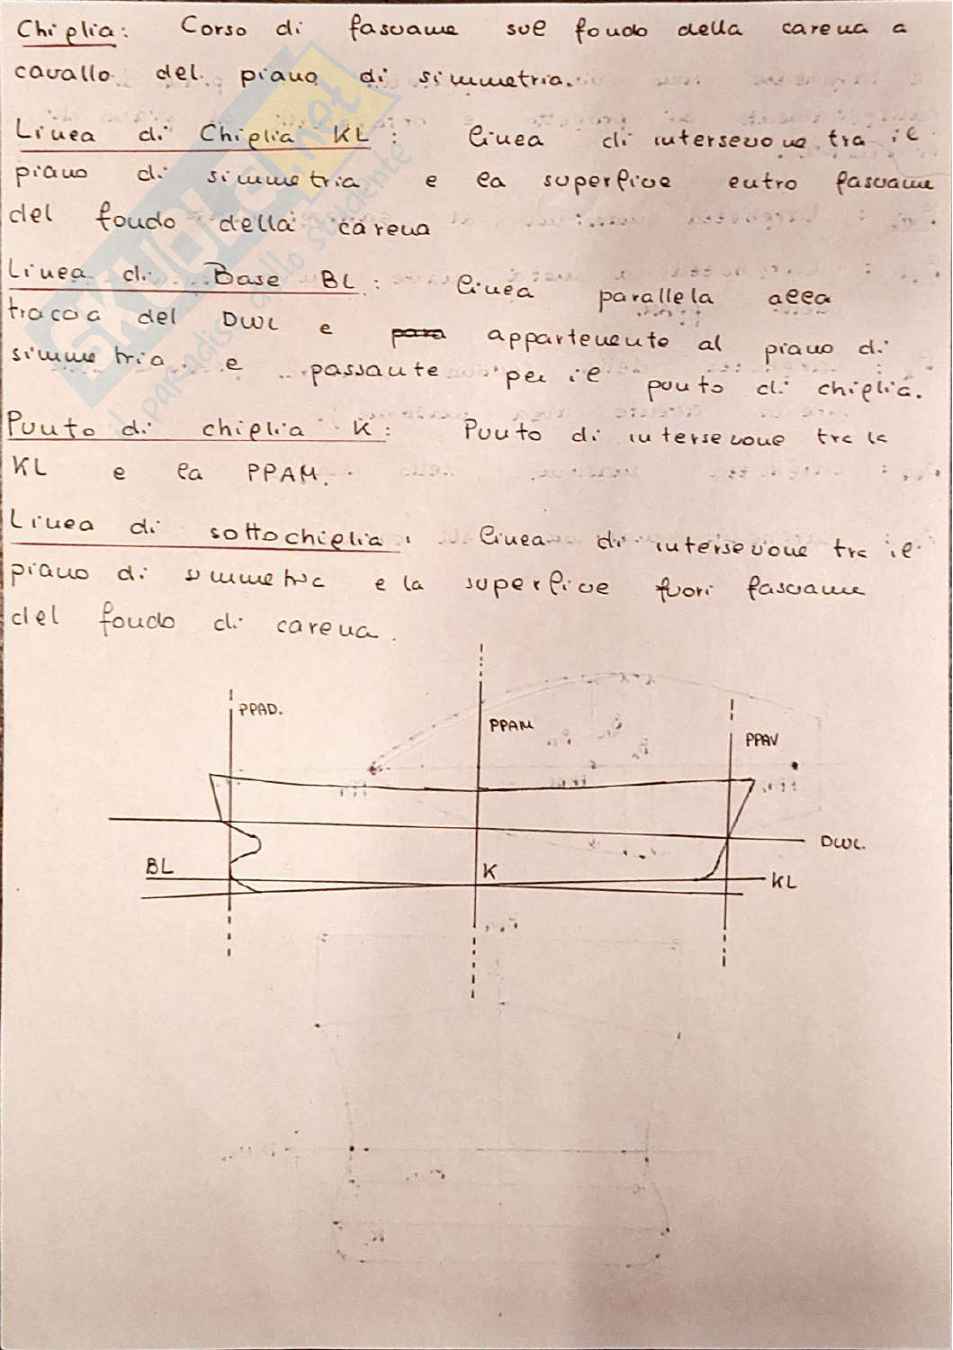 Chiglia: Corso di fasciame sul fondo della carena a
cavallo del piano di simmetria.
Linea di Chiglia KL: linea di intersezione tra il
piano di simmetria e la superficie entro fasciame
del fondo della carena
Linea di Base BL: linea parallela alla
traccia del DWL e appartenente al piano di
simmetria e passante per il punto di chiglia.
Punto di chiglia K: Punto di intersezione tra la
KL e la PPAM.
Linea di sottochiglia: linea di intersezione tra il
piano di simmetria e la superficie fuori fasciame
del fondo di carena.
PPAD.
PPAM
PPAV
DWL.
BL
K
KL
SKUOLA.net
il paradiso dello studente